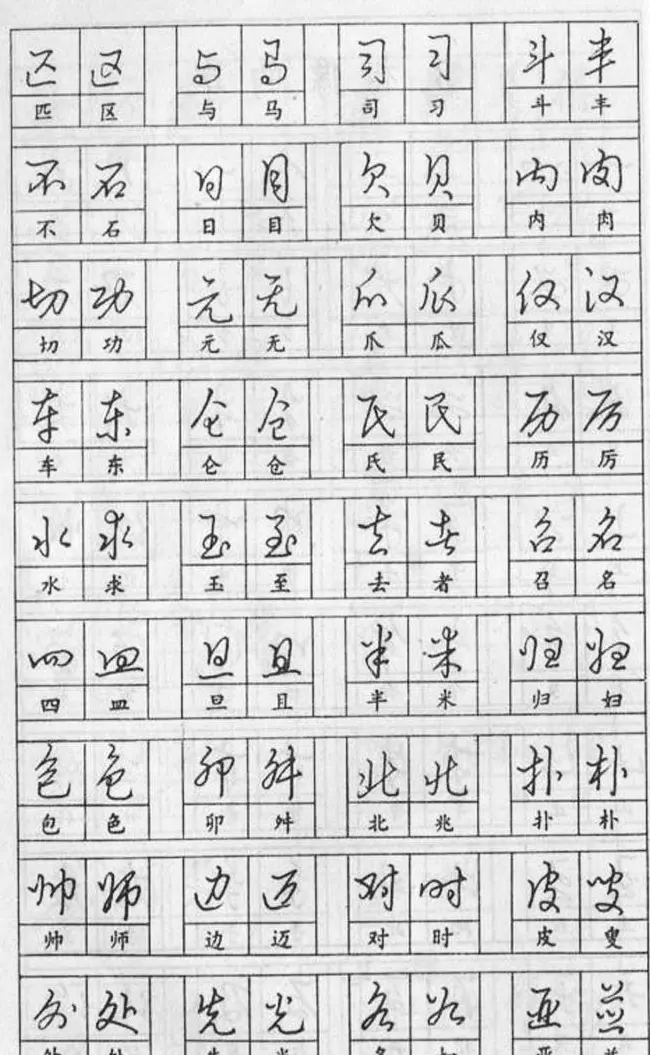 匹 区 与 马 司 习 斗 丰
匹 区 与 马 司 习 斗 丰
不 石 日 目 欠 贝 内 肉
不 石 日 目 欠 贝 内 肉
切 功 元 无 爪 瓜 仅 汉
切 功 元 无 爪 瓜 仅 汉
车 东 仑 仓 氏 民 历 厉
车 东 仑 仓 氏 民 历 厉
水 求 玉 至 去 者 召 名
水 求 玉 至 去 者 召 名
四 皿 旦 且 半 米 归 妇
四 皿 旦 且 半 米 归 妇
包 色 卯 舛 北 兆 扑 朴
包 色 卯 舛 北 兆 扑 朴
帅 师 边 迈 对 时 皮 叟
帅 师 边 迈 对 时 皮 叟
外 处 先 光 各 亚